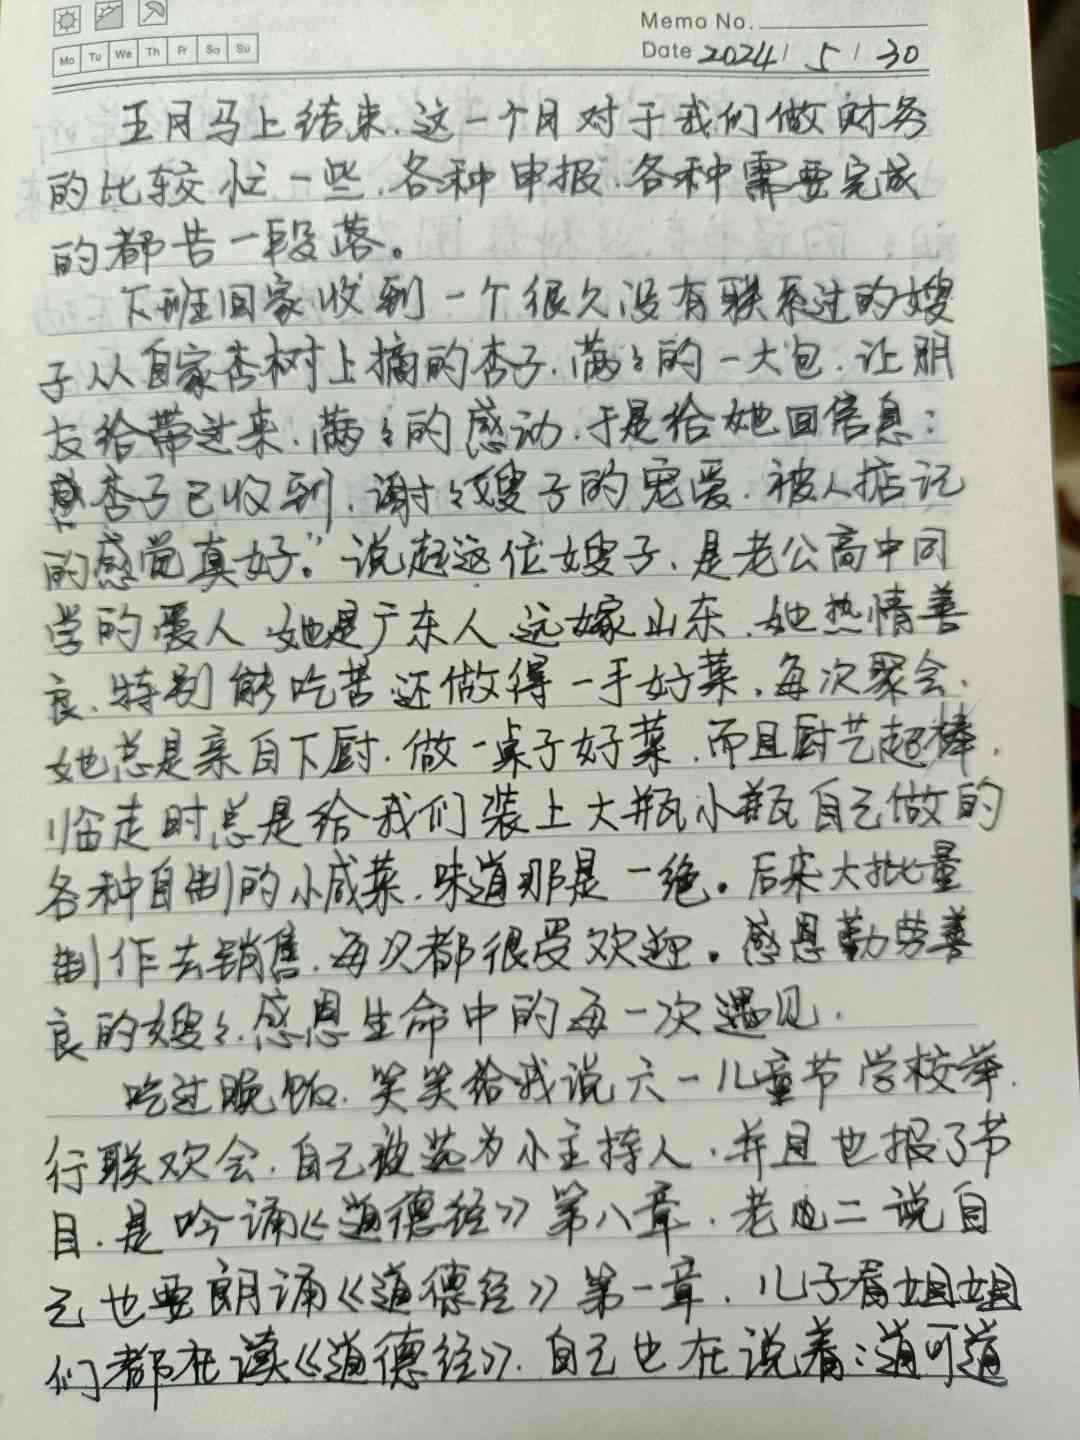 Memo No.
Mo Tu We Th Fr Sa Su
Date 2024 / 5 / 30
五月马上结束,这一个月对于我们做财务
的比较忙一些,各种申报,各种需要完成
的都告一段落。
下班回家收到一个很久没有联系过的嫂
子从自家杏树上摘的杏子,满々的一大包,让朋
友给带过来,满々的感动,于是给她回信息:
杏子已收到,谢々嫂子的宠爱,被人惦记
的感觉真好。”说起这位嫂子,是老公高中同
学的爱人 她是广东人 远嫁山东,她热情善
良,特别能吃苦,还做得一手好菜,每次聚会,
她总是亲自下厨,做一桌子好菜,而且厨艺超棒,
临走时总是给我们装上大瓶小瓶自己做的
各种自制的小咸菜,味道那是一绝。后来大批量
制作去销售,每次都很受欢迎。感恩勤劳善
良的嫂々,感恩生命中的每一次遇见.
吃过晚饭,笑笑给我说六一儿童节学校举
行联欢会,自己被选为小主持人,并且也报了节
目,是吟诵《道德经》第八章,老二说自
己也要朗诵《道德经》第一章,儿子看姐姐
们都在读《道德经》,自己也在说着:道可道